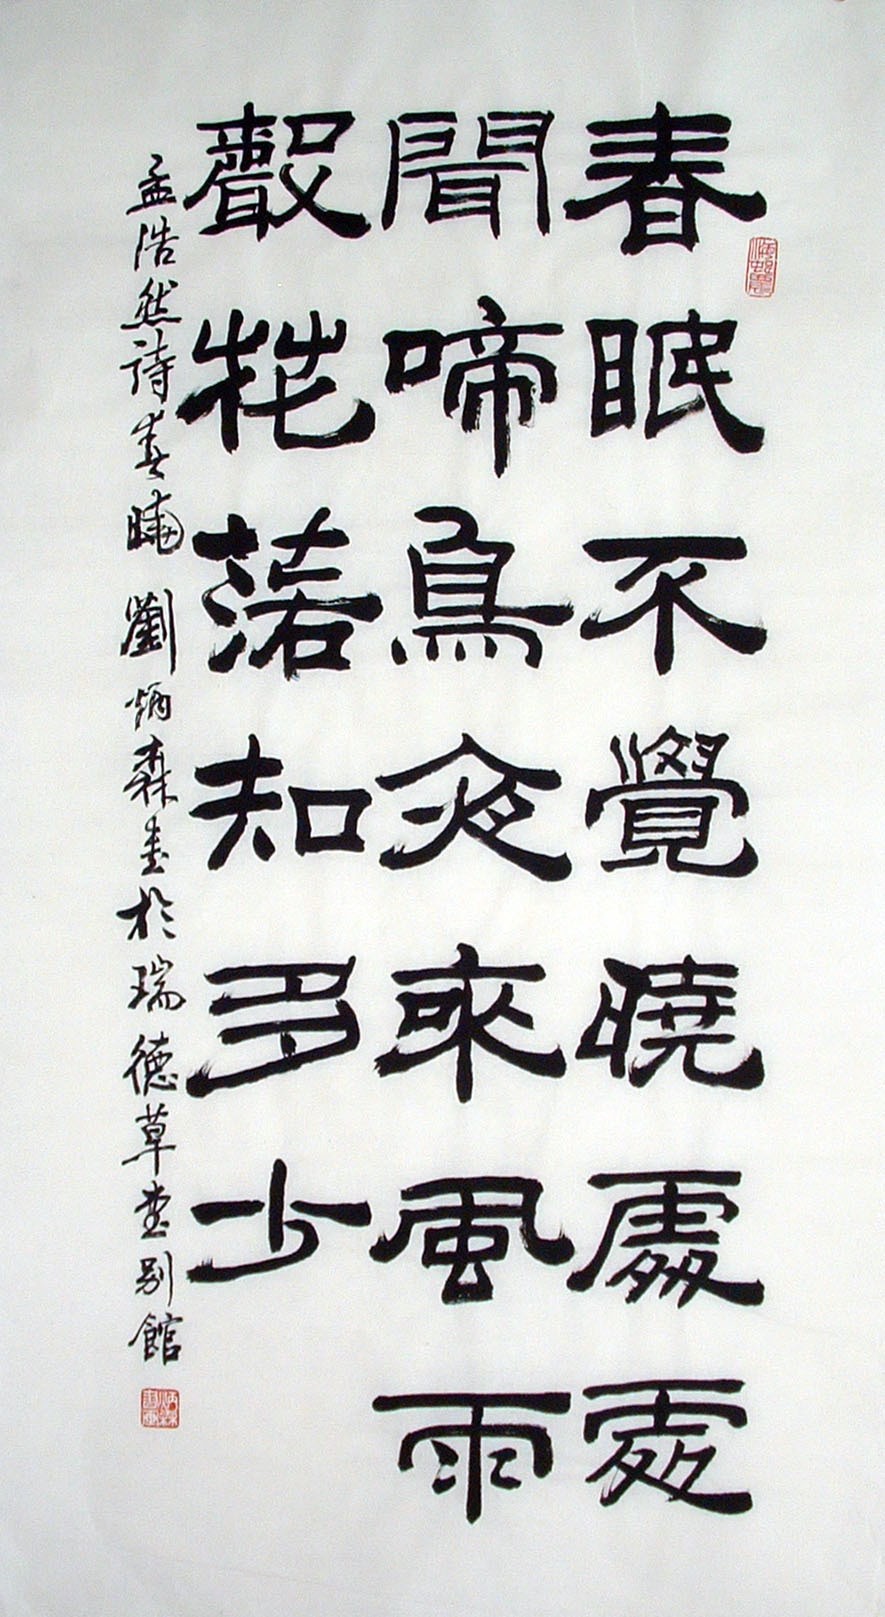 春眠不覺曉處處
聞啼鳥夜來風雨
聲花落知多少
孟浩然詩春曉 劉炳森書於瑞德草堂別館
炳森書画